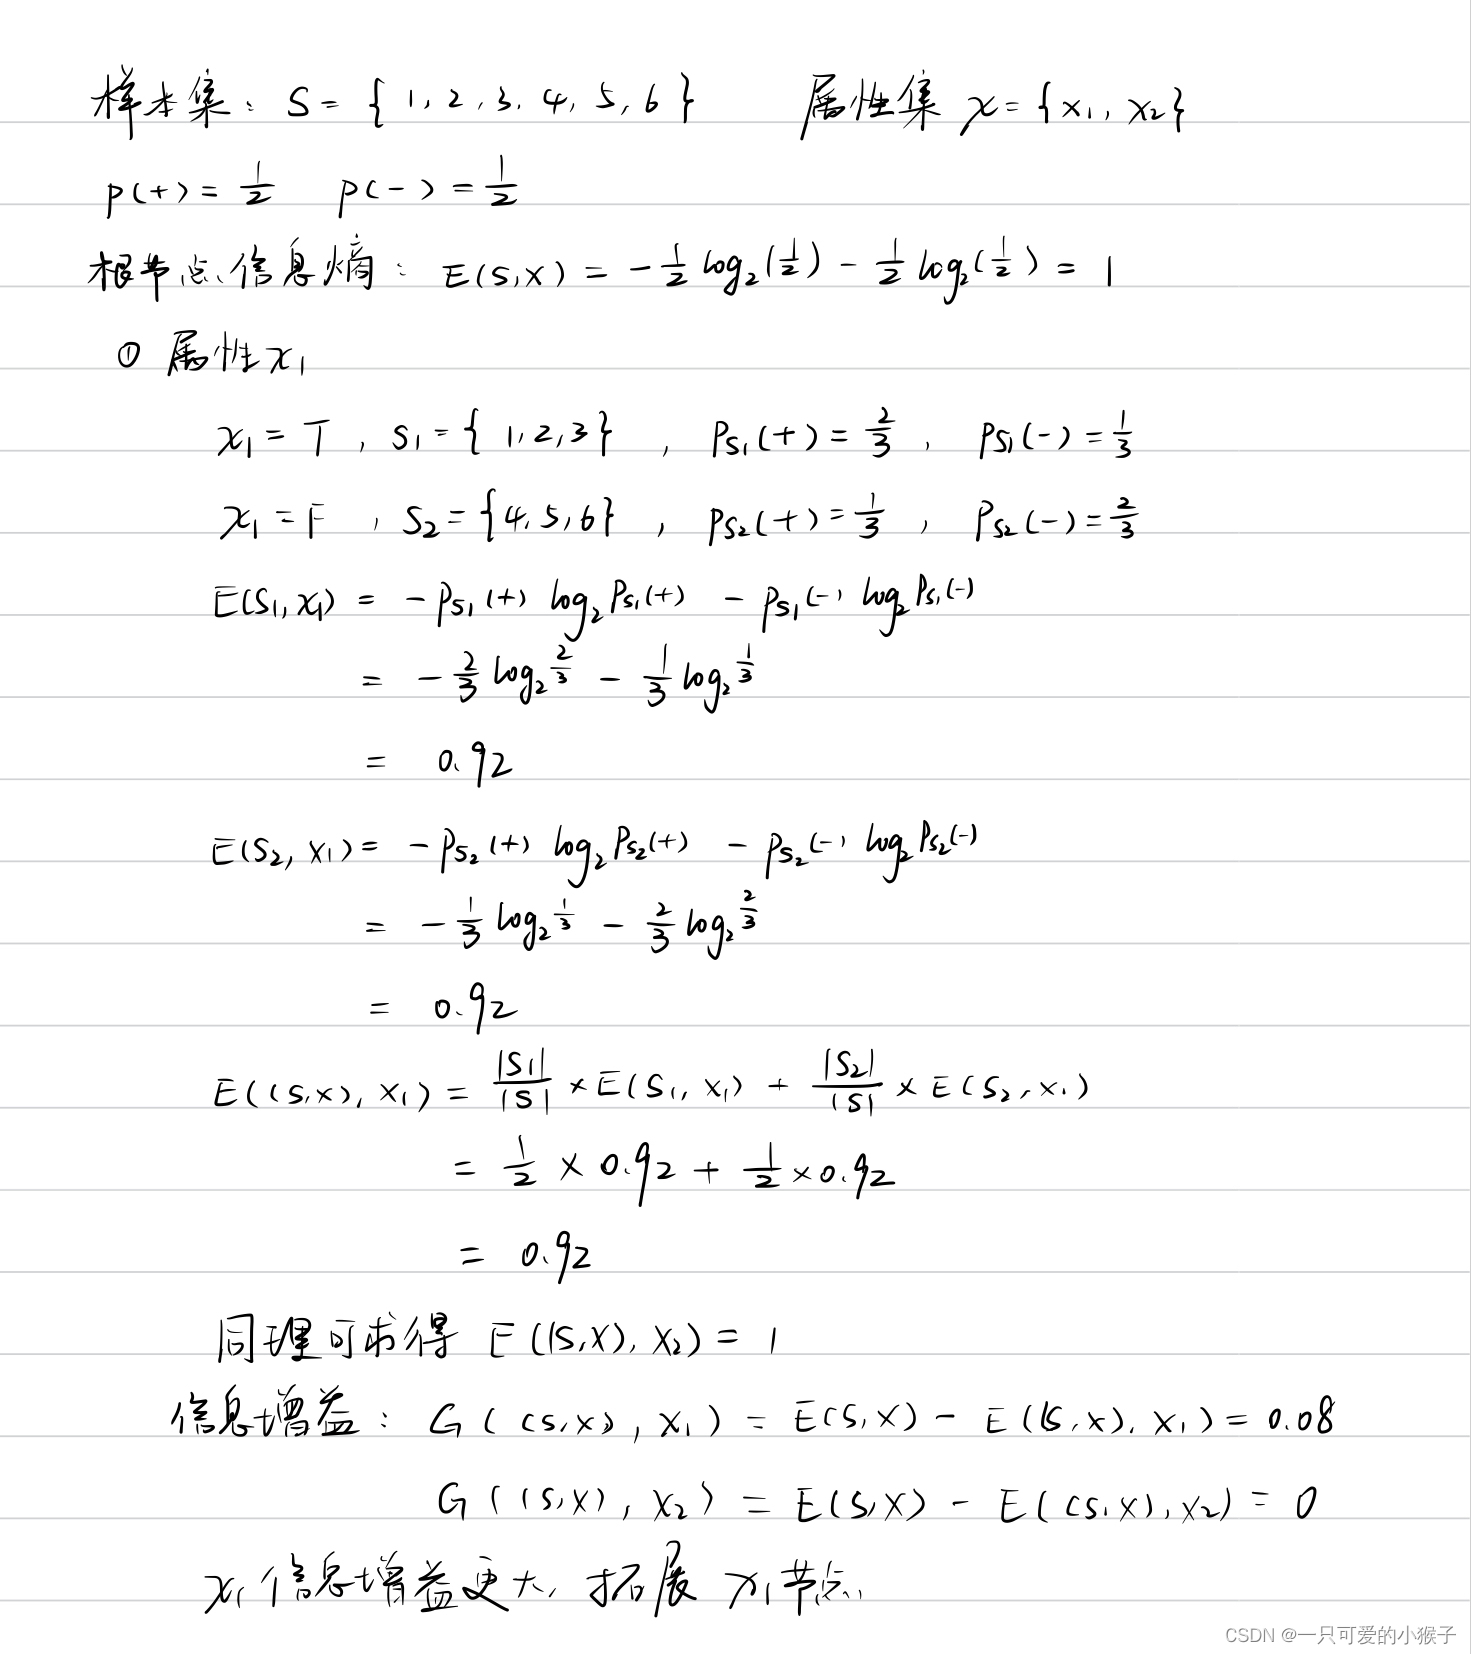 样本集：S = { 1, 2, 3, 4, 5, 6 }    属性集 x = { x₁, x₂ }
P(+) = 1/2    P(-) = 1/2
根节点信息熵：E(S,X) = -1/2 log₂(1/2) - 1/2 log₂(1/2) = 1
① 属性x₁
x₁ = T , S₁ = { 1, 2, 3 } , P_S₁(+) = 2/3 , P_S₁(-) = 1/3
x₁ = F , S₂ = { 4, 5, 6 } , P_S₂(+) = 1/3 , P_S₂(-) = 2/3
E(S₁, x₁) = -P_S₁(+) log₂ P_S₁(+) - P_S₁(-) log₂ P_S₁(-)
= -2/3 log₂ 2/3 - 1/3 log₂ 1/3
= 0.92
E(S₂, x₁) = -P_S₂(+) log₂ P_S₂(+) - P_S₂(-) log₂ P_S₂(-)
= -1/3 log₂ 1/3 - 2/3 log₂ 2/3
= 0.92
E((S,X), x₁) = |S₁|/|S| × E(S₁, x₁) + |S₂|/|S| × E(S₂, x₁)
= 1/2 × 0.92 + 1/2 × 0.92
= 0.92
同理可求得 E((S,X), x₂) = 1
信息增益：G((S,X), x₁) = E(S,X) - E((S,X), x₁) = 0.08
G((S,X), x₂) = E(S,X) - E((S,X), x₂) = 0
x₁信息增益更大，拓展 x₁节点
CSDN @一只可爱的小猴子